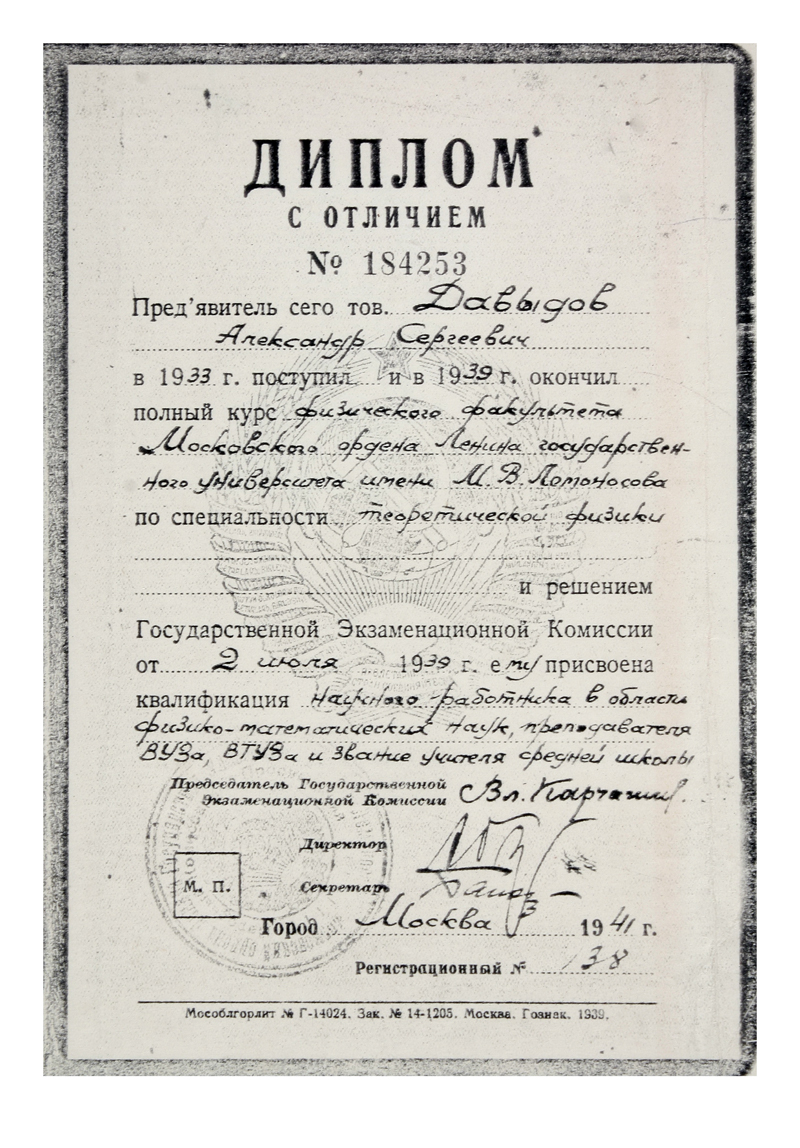 ДИПЛОМ
С ОТЛИЧИЕМ
№ 184253
Пред'явитель сего тов. Давыдов
Александр Сергеевич
в 1933 г. поступил и в 1939 г. окончил
полный курс физического факультета
Московского ордена Ленина государствен-
ного университета имени М.В.Ломоносова
по специальности теоретической физики
и решением
Государственной Экзаменационной Комиссии
от 2 июля 1939 г. ему присвоена
квалификация научного работника в области
физико-математических наук, преподавателя
ВУЗа, ВТУЗа и звание учителя средней школы
Председатель Государственной
Экзаменационной Комиссии Вл.
Директор
М. П. Секретарь
Город Москва 1941 г.
Регистрационный № 138
Мособлгорлит № Г-14024. Зак. № 14-1205. Москва. Гознак. 1939.